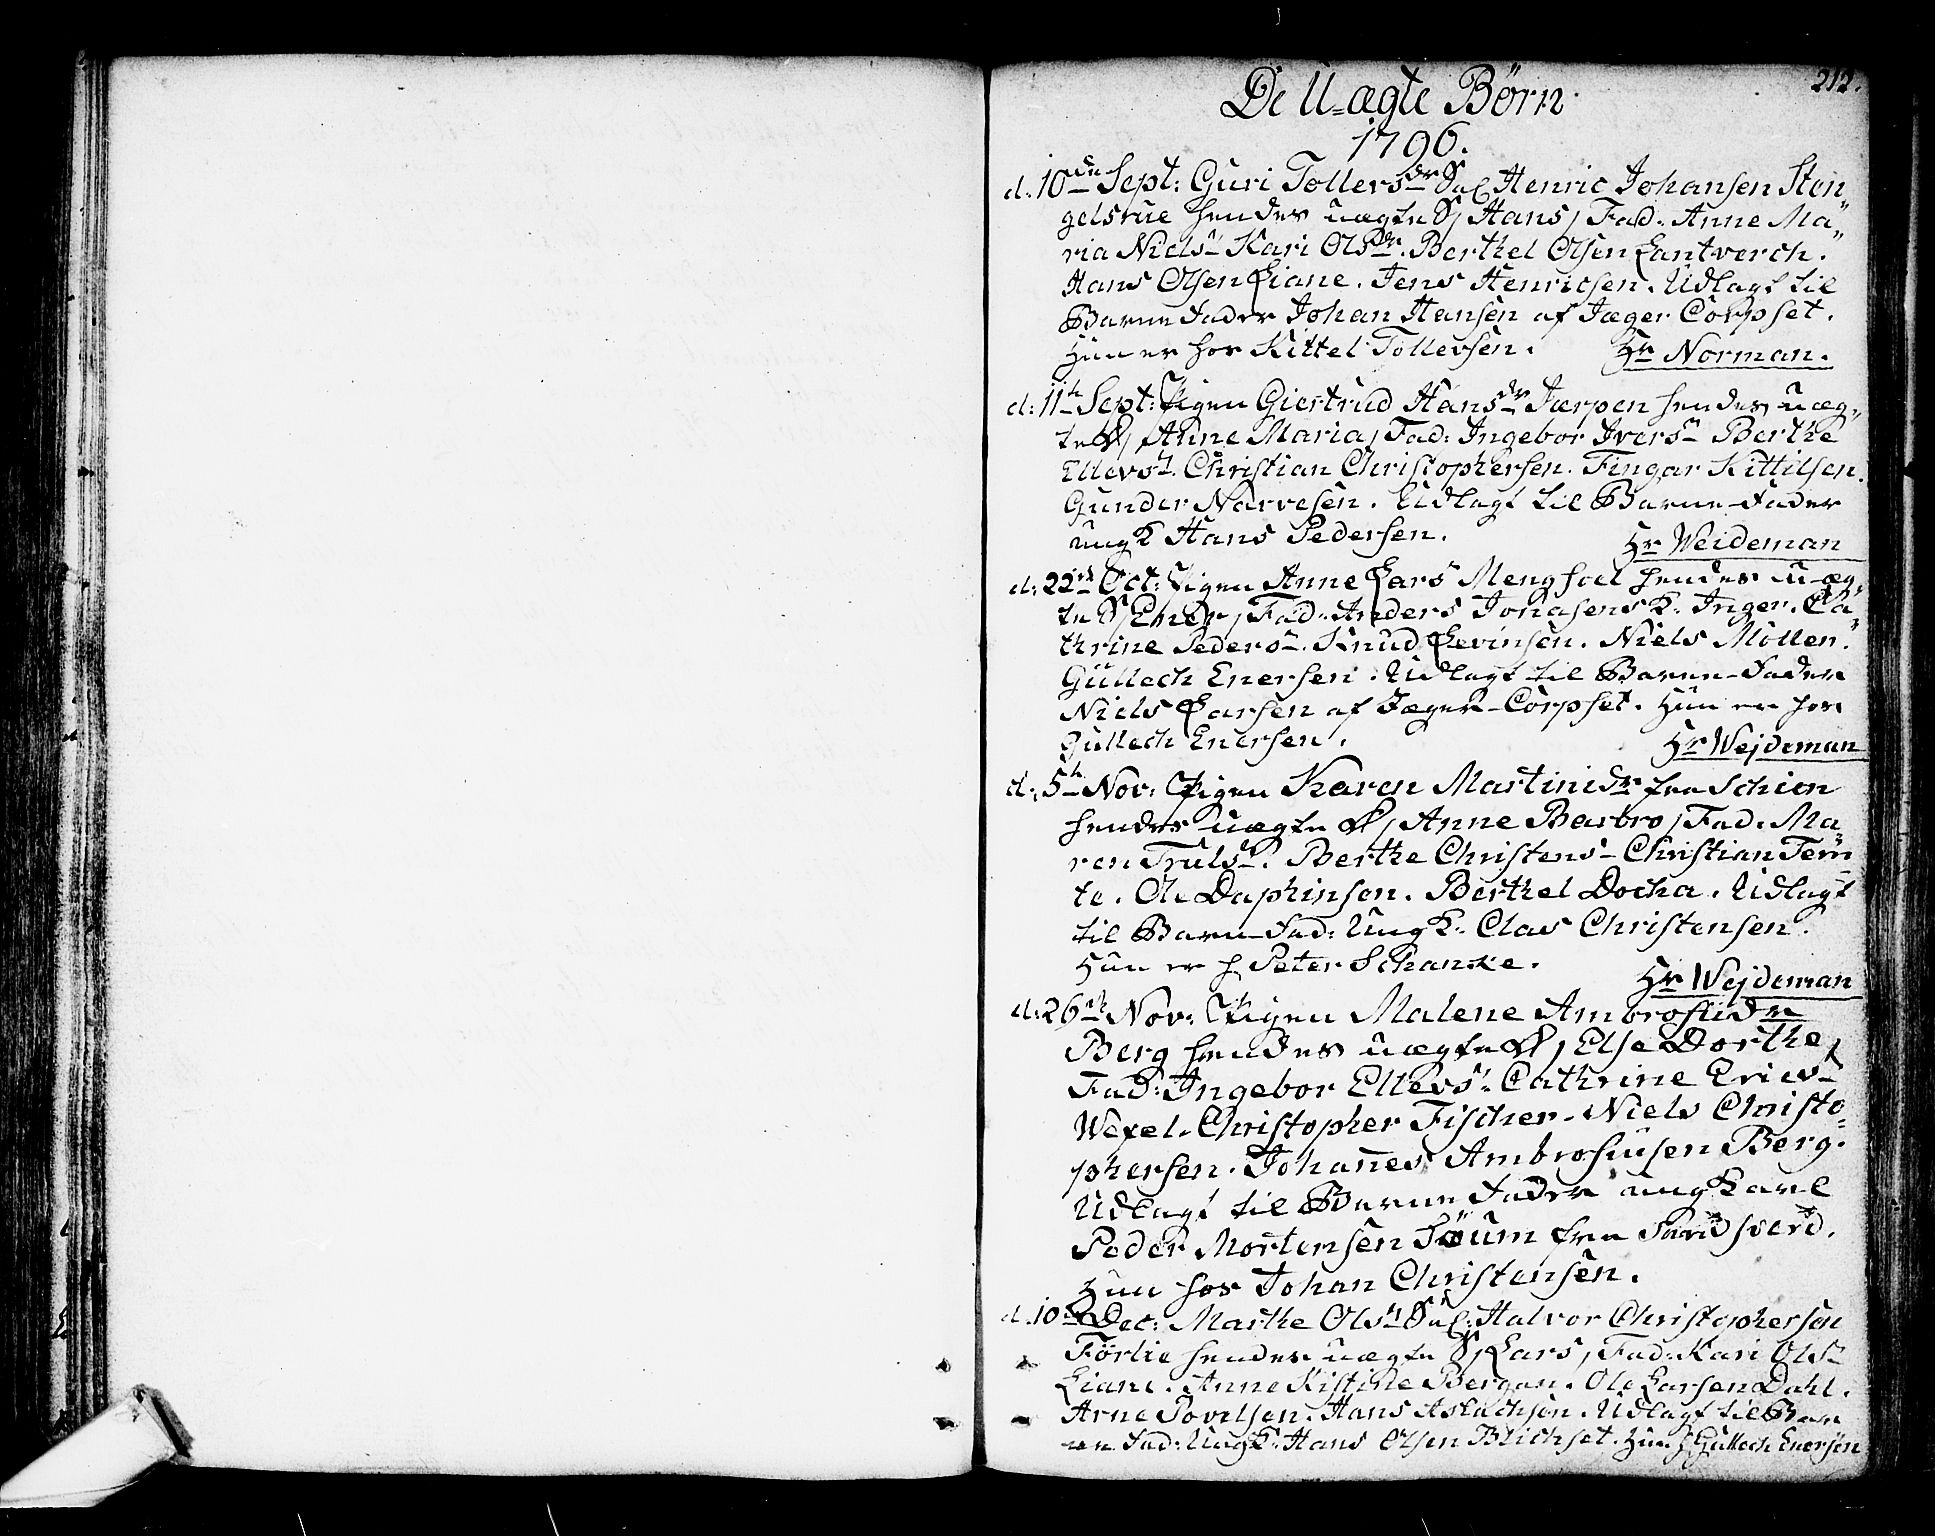 212.
De U-ægte Børn
1796.
d: 10de Sept: Guri Tollersdr Sal. Henric Johansen Sten„
gelsrue hendes uægte S/ Hans/ Fad: Anne Ma„
ria Nielsd Kari Olsdr. Berthel Olsen Lantverch.
Hans Olsen Liane. Jens Henricsen. Udlagt til
Barne Fader Johan Hansen af Jæger Corpset.
Hun er hos Kittel Tollevsen. Hr Norman.
d: 11te Sept: Pigen Giertrud Hansdr Jærpen hendes uæg„
te D/ Anne Maria/ Fad: Ingebor Iversd Berthe
Ellevsd. Christian Christophersen. Fingar Kittilsen.
Gunder Narvesen. Udlagt til Barne-Fader
ungK Hans Pedersen. Hr Weideman
d: 22de Oct: Pigen Anne Larsd Mengshoel hendes u-æg„
te S/ Ener/ Fad: Anders Jonasens K. Inger. Ca„
thrine Pedersd. Knud Levinsen. Niels Møllen.
Gullech Enersen. Udlagt til Barne-Fader
Niels Larsen af Jæger-Corpset. Hun er hos
Gullech Enersen. Hr Wejdeman
d: 5te Nov: Pigen Karen Martinidr fra Schien
hendes uægte D/ Anne Barbro/ Fad: Ma„
ren Trulsd. Berthe Christensd Christian Tern
te. Ole Daphinsen. Berthel Docha. Udlagt
til Barne-Fad: UngK. Clas Christensen.
Hun er h. Peter Schanke. Hr Wejdeman
d: 26de Nov: Pigen Malene Ambrosiidr
Berg hendes uægte D/ Else Dorthe/
Fad: Ingebor Ellevsd. Cathrine Ericsd
Wexel. Christopher Fischer. Niels Christo„
phersen. Johannes Ambrosiusen Berg.
Udlagt til Barne Fader ungKarl
Peder Mortensen Søum fra Sandsverd.
Hun hos Johan Christensen.
d. 10de Dec: Marthe Olsd Sal: Halvor Christophersen
Førlie hendes uægte S/ Lars/ Fad: Kari Olsd
Liane. Anne Kistine Bergan. Ole Larsen Dahl.
Arne Povelsen. Hans Aslachsen. Udlagt til Bar
ne Fad: UngK. Hans Olsen Blichset. Hun h. Gullech Enersen